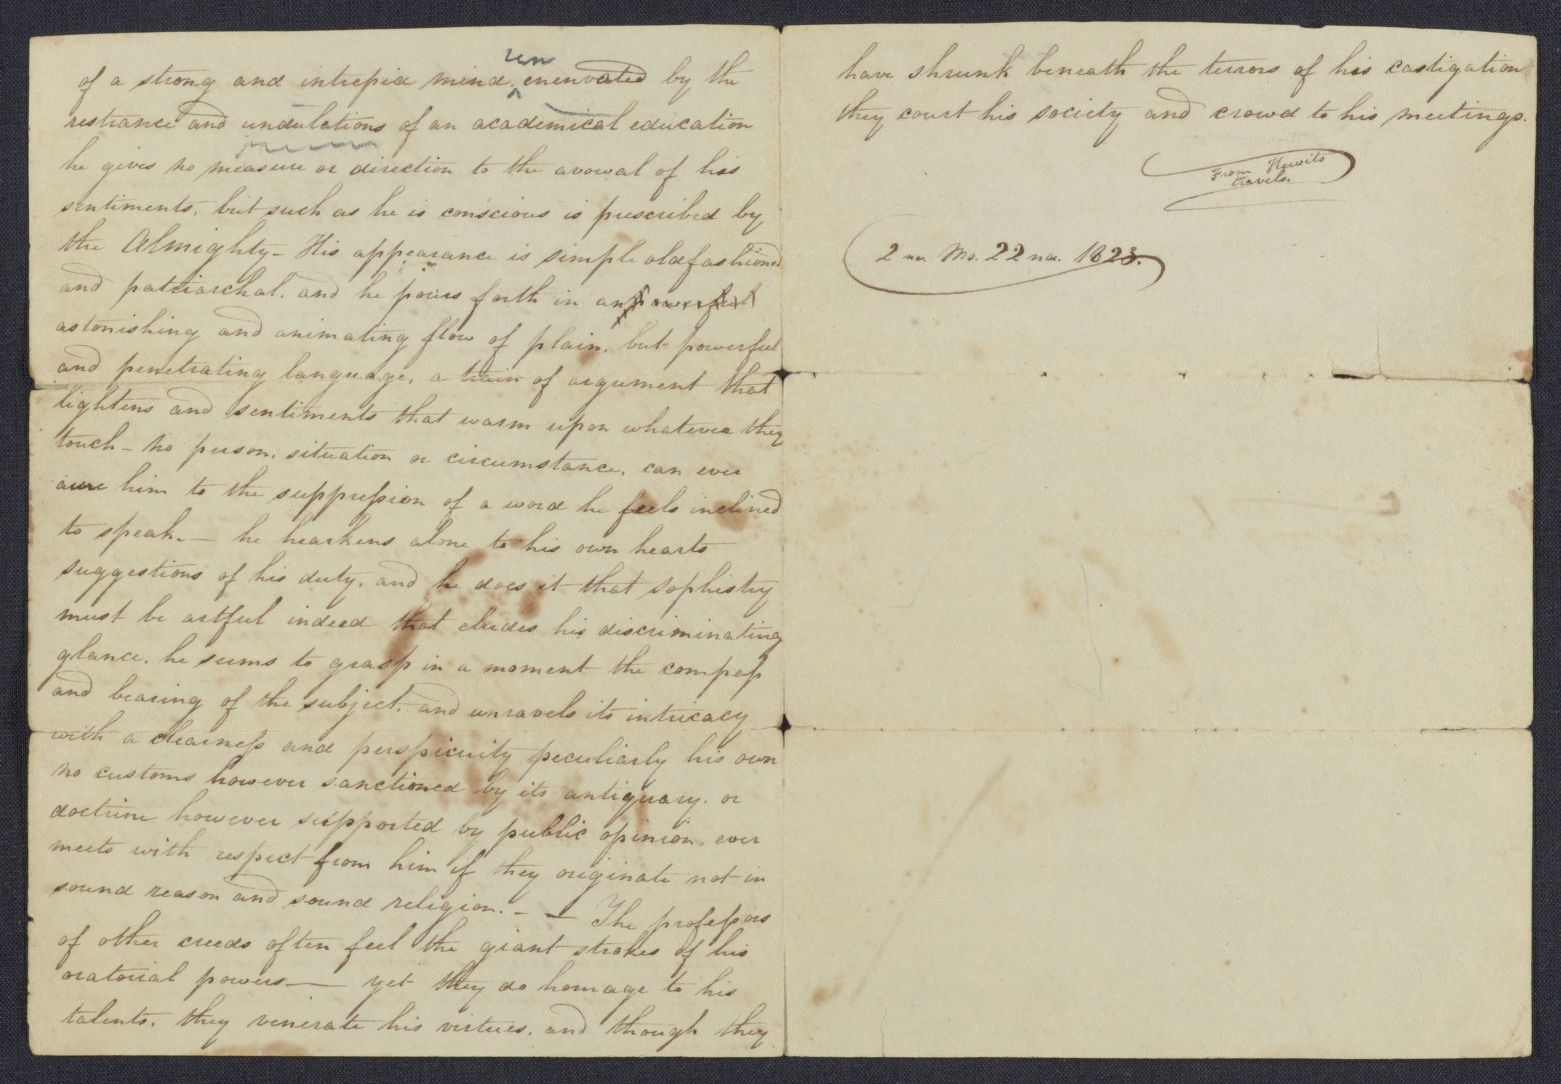 of a strong and intrepid mind, ^un enervated by the
restiance and undulations of an academical education
he gives no measure or direction to the avowal of his
sentiments, but such as he is conscious is prescribed by
the Almighty - His appearance is simple oldfashioned
and patriarchal. and he pours forth in an powerful
astonishing and animating flow of plain, but powerful
and penetrating language, a train of argument that
lightens and sentiments that warm upon whatever they
touch - No person, situation or circumstance, can ever
awe him to the suppression of a word he feels inclined
to speak. — he hearkens alone to his own hearts
suggestions of his duty, and he does it that sophistry
must be artful indeed that eludes his discriminating
glance. he seems to grasp in a moment the compass
and bearing of the subject, and unravels its intricacy
with a clearness and perspicuity peculiarly his own
no customs however sanctioned by its antiquary. or
doctrine however supported by public opinion, ever
meets with respect from him if they originate not in
sound reason and sound religion. - — The professors
of other creeds often feel the giant strokes of his
oratorial powers — yet they do homage to his
talents, they venerate his virtues, and though they
have shrunk beneath the terrors of his castigation
they court his society and crowd to his meetings.
From Hewits
travels.
2 Mo. 22 1823.